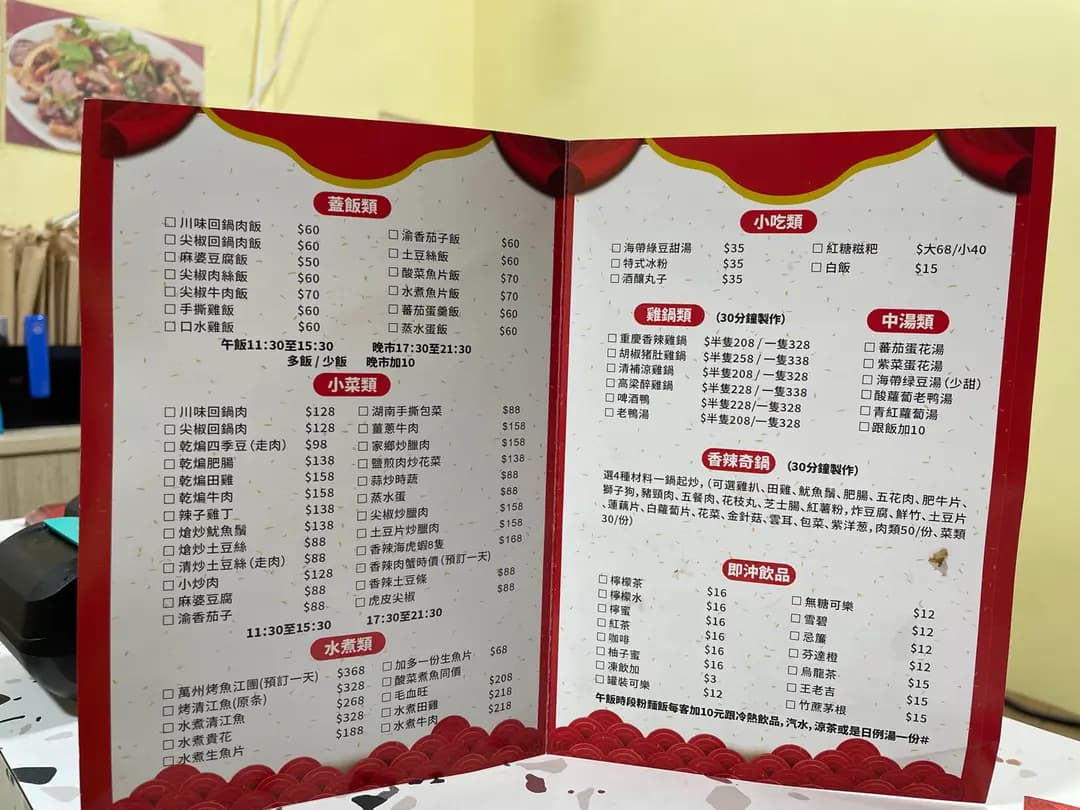 蓋飯類
川味回鍋肉飯 $60
尖椒回鍋肉飯 $60
麻婆豆腐飯 $50
尖椒肉絲飯 $60
尖椒牛肉飯 $70
手撕雞飯 $60
口水雞飯 $60
渝香茄子飯 $60
土豆絲飯 $60
酸菜魚片飯 $70
水煮魚片飯 $70
蕃茄蛋羹飯 $60
蒸水蛋飯 $60
午飯11:30至15:30 晚市17:30至21:30
多飯 / 少飯 晚市加10
小菜類
川味回鍋肉 $128
尖椒回鍋肉 $128
乾煸四季豆(走肉) $98
乾煸肥腸 $138
乾煸田雞 $158
乾煸牛肉 $158
辣子雞丁 $138
熗炒魷魚鬚 $138
熗炒土豆絲 $88
清炒土豆絲(走肉) $88
小炒肉 $128
麻婆豆腐 $88
渝香茄子 $88
湖南手撕包菜 $88
薑蔥牛肉 $158
家鄉炒臘肉 $158
鹽煎肉炒花菜 $138
蒜炒時蔬 $88
蒸水蛋 $88
尖椒炒臘肉 $158
土豆片炒臘肉 $158
香辣海虎蝦8隻 $168
香辣肉蟹時價(預訂一天)
香辣土豆條 $88
虎皮尖椒 $88
11:30至15:30 17:30至21:30
水煮類
萬州烤魚江團(預訂一天) $368
烤清江魚(原条) $328
水煮清江魚 $268
水煮貴花 $328
水煮生魚片 $188
加多一份生魚片 $68
酸菜煮魚同價
毛血旺 $208
水煮田雞 $218
水煮牛肉 $218
小吃類
海帶綠豆甜湯 $35
特式冰粉 $35
酒釀丸子 $35
紅糖糍粑 $大68/小40
白飯 $15
雞鍋類 (30分鐘製作)
重慶香辣雞鍋 $半隻208 / 一隻328
胡椒猪肚雞鍋 $半隻258 / 一隻338
清補涼雞鍋 $半隻208 / 一隻328
高梁醉雞鍋 $半隻228 / 一隻338
啤酒鴨 $半隻228/一隻328
老鴨湯 $半隻208/一隻328
中湯類
蕃茄蛋花湯
紫菜蛋花湯
海帶绿豆湯(少甜)
酸蘿蔔老鴨湯
青紅蘿蔔湯
跟飯加10
香辣奇鍋 (30分鐘製作)
選4種材料一鍋起炒, (可選雞扒、田雞、魷魚鬚、肥腸、五花肉、肥牛片、
獅子狗, 豬頸肉、五餐肉、花枝丸、芝士腸、紅薯粉, 炸豆腐、鮮竹、土豆片
、蓮藕片、白蘿蔔片、花菜、金針菇、雲耳、包菜、紫洋葱, 肉類50/份、菜類
30/份)
即沖飲品
檸檬茶 $16
檸檬水 $16
檸蜜 $16
紅茶 $16
咖啡 $16
柚子蜜 $16
凍飲加 $3
罐裝可樂 $12
無糖可樂 $12
雪碧 $12
忌簾 $12
芬達橙 $12
烏龍茶 $15
王老吉 $15
竹蔗茅根 $15
午飯時段粉麵飯每客加10元跟冷熱飲品, 汽水, 涼茶或是日例湯一份#